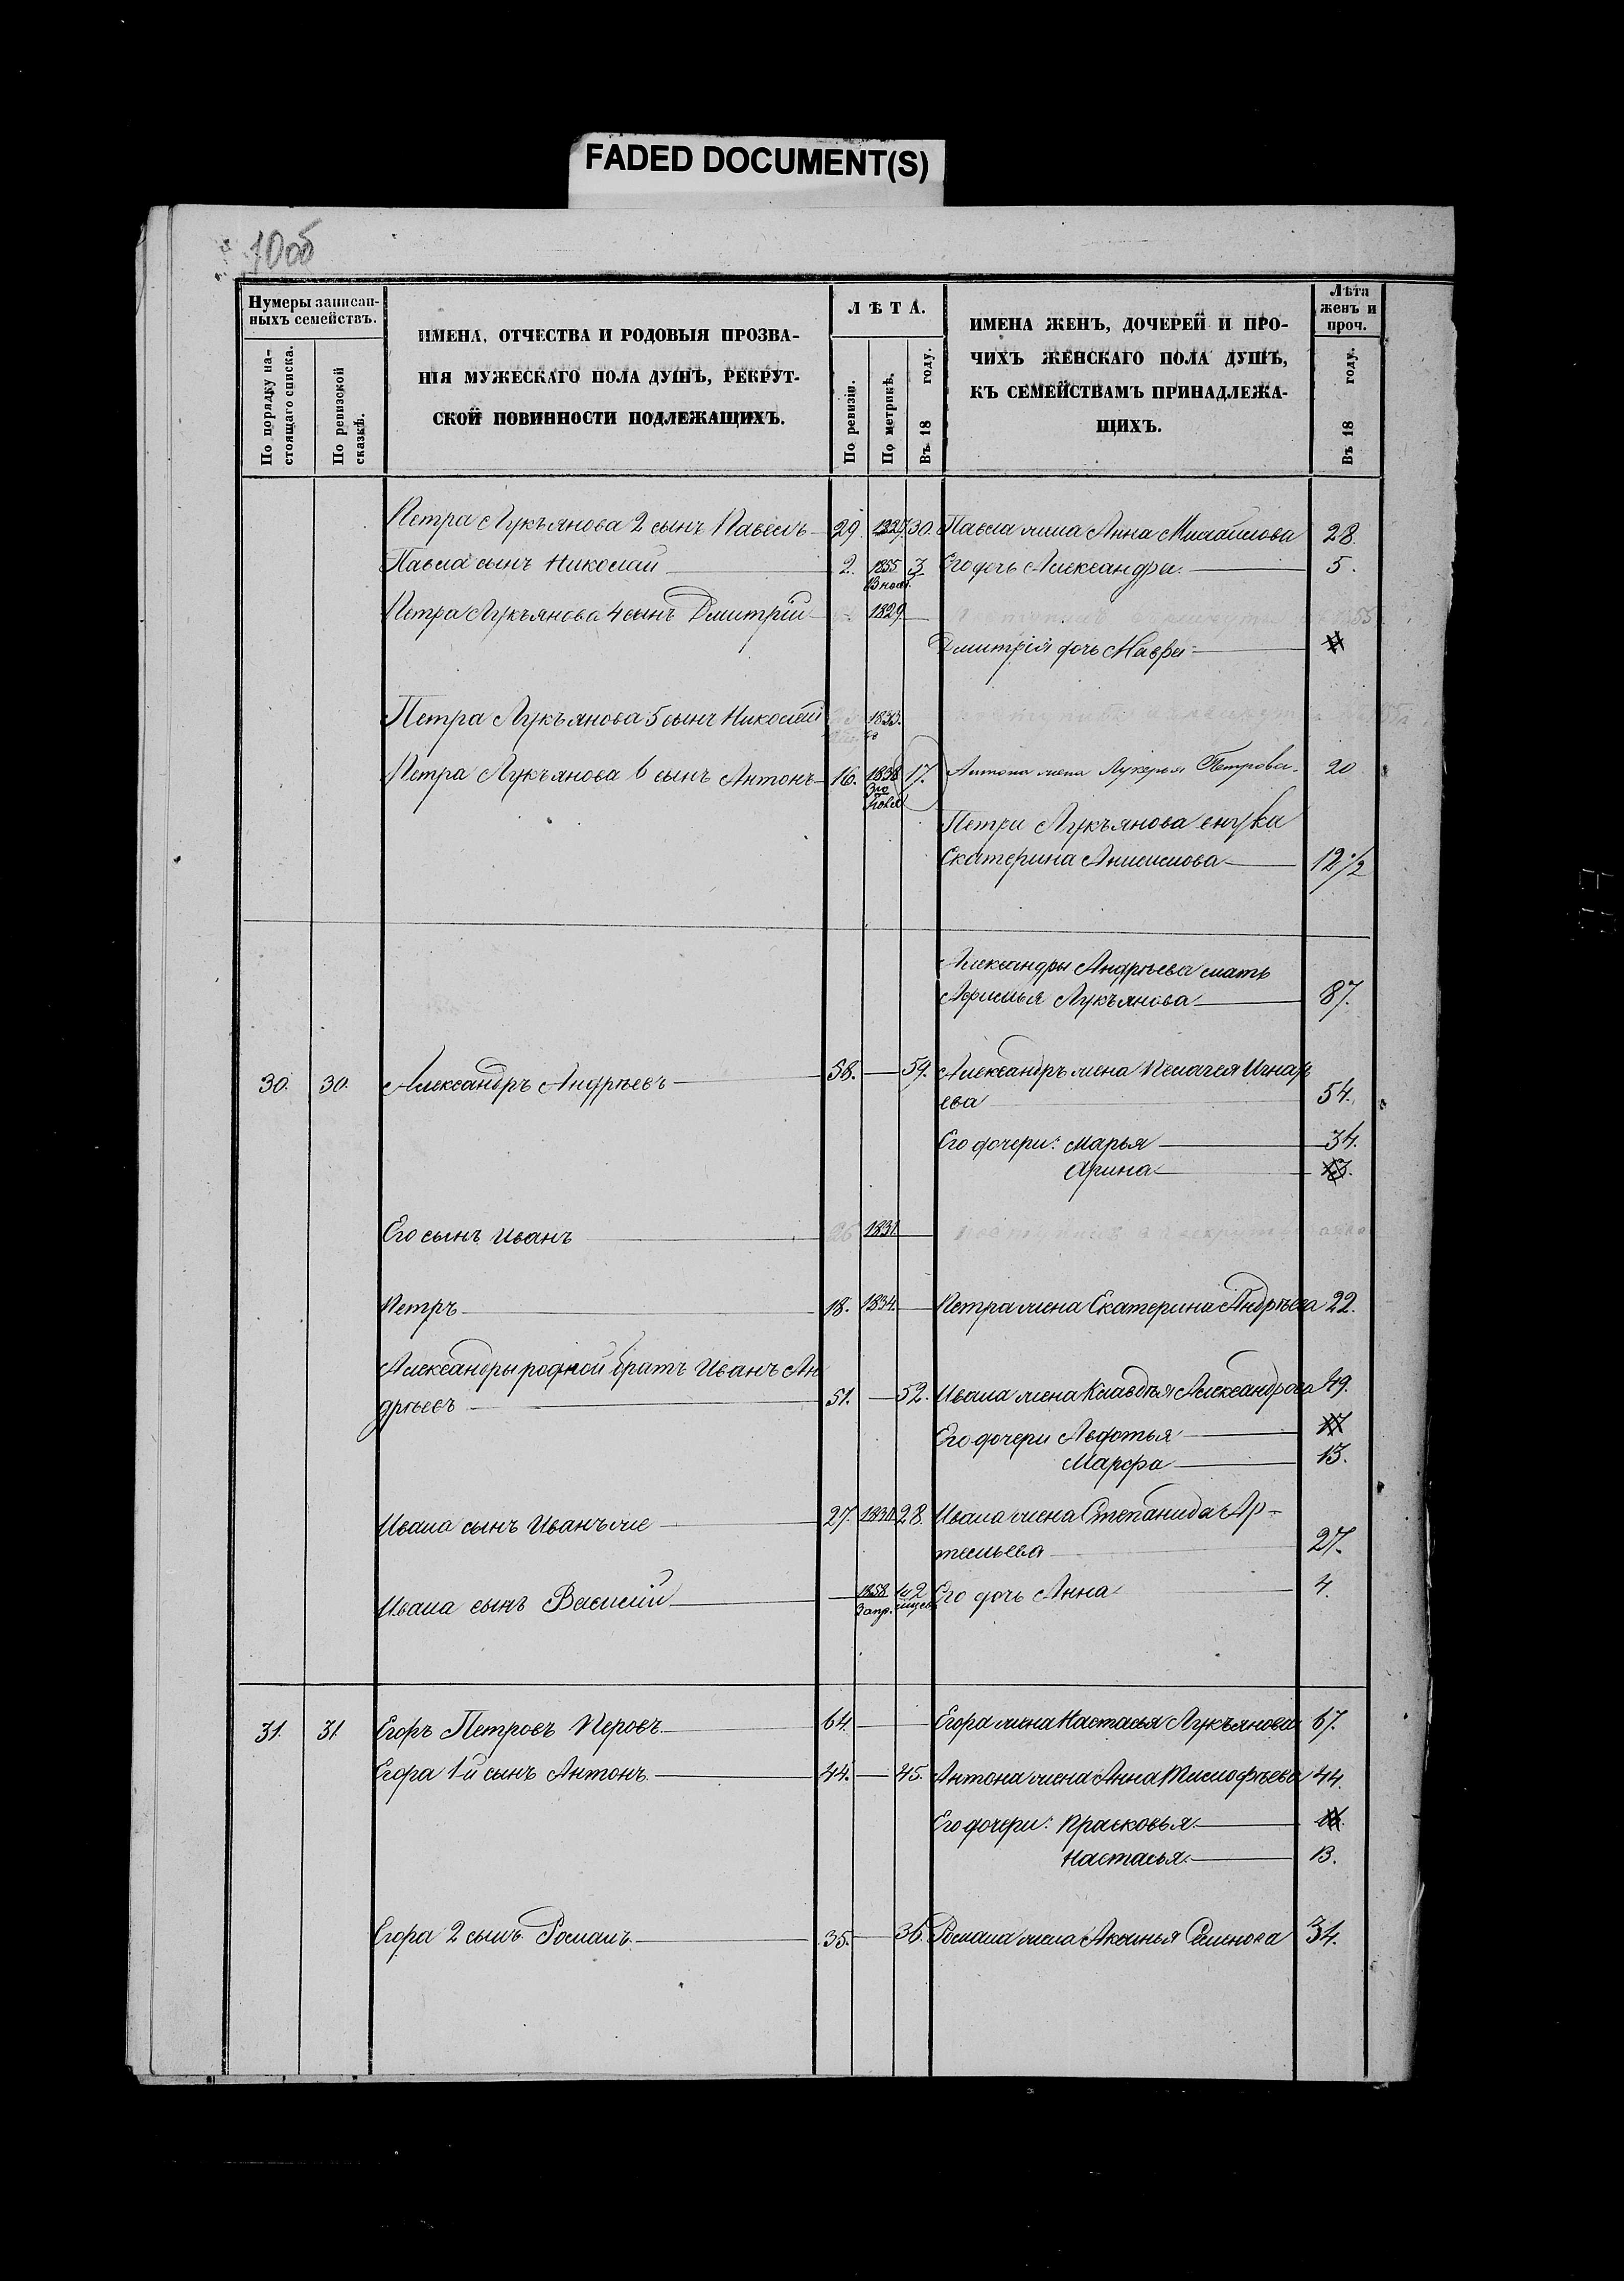 FADED DOCUMENT(S)
10об
Нумеры записан-
ныхъ семействъ.
По порядку на-
стоящаго списка.
По ревизской
сказкѣ.
ИМЕНА, ОТЧЕСТВА И РОДОВЫЯ ПРОЗВА-
НІЯ МУЖЕСКАГО ПОЛА ДУШЪ, РЕКРУТ-
СКОЙ ПОВИННОСТИ ПОДЛЕЖАЩИХЪ.
ЛѢТА.
По ревизіи.
По метрикѣ.
Въ 18 году.
ИМЕНА ЖЕНЪ, ДОЧЕРЕЙ И ПРО-
ЧИХЪ ЖЕНСКАГО ПОЛА ДУШЪ,
КЪ СЕМЕЙСТВАМЪ ПРИНАДЛЕЖА-
ЩИХЪ.
Лѣта
женъ и
проч.
Въ 18 году.
Петра Лукъянова 2 сынъ Павелъ 29. 1827 30. Павла жена Анна Михайлова 28.
Павла сынъ Николай 2. 1855 3 Его дочь Александра 5.
Петра Лукъянова 4 сынъ Дмитрій 1829
Дмитрія дочь Мавра
Петра Лукъянова 5 сынъ Николай 1833.
Петра Лукъянова 6 сынъ Антонъ 16. 1838 17. Антона жена Лукерья Петрова 20
Петра Лукъянова внука
Екатерина Анисимова 12 1/2
Александры Андрѣева мать
Афимья Лукъянова 87.
30. 30. Александръ Андрѣевъ 58. 59. Александръ жена Пелагея Игнать
ева 54.
Его дочери: Марья 34.
Арина 13.
Его сынъ Иванъ 26 1831. поступилъ в рекруты
Петръ 18. 1834. Петра жена Екатерина Андрѣева 22.
Александры родной братъ Иванъ Ан
дрѣевъ 51. 52. Ивана жена Клавдѣя Александрова 49.
Его дочери Авдотья 17
Марфа 13.
Ивана сынъ Иванъ же 27. 1830 28. Ивана жена Степанида Ар-
темьева 27.
Ивана сынъ Василій 1858 3 апр. Его дочь Анна 4.
31. 31 Егоръ Петровъ Перовъ 64. Егора жена Настасья Лукъянова 67.
Егора 1й сынъ Антонъ 44. 45. Антона жена Анна Тимофѣева 44.
Его дочери: Прасковья
Настасья 13.
Егора 2 сынъ Романъ 35. 36. Романа жена Аксинья Семенова 34.